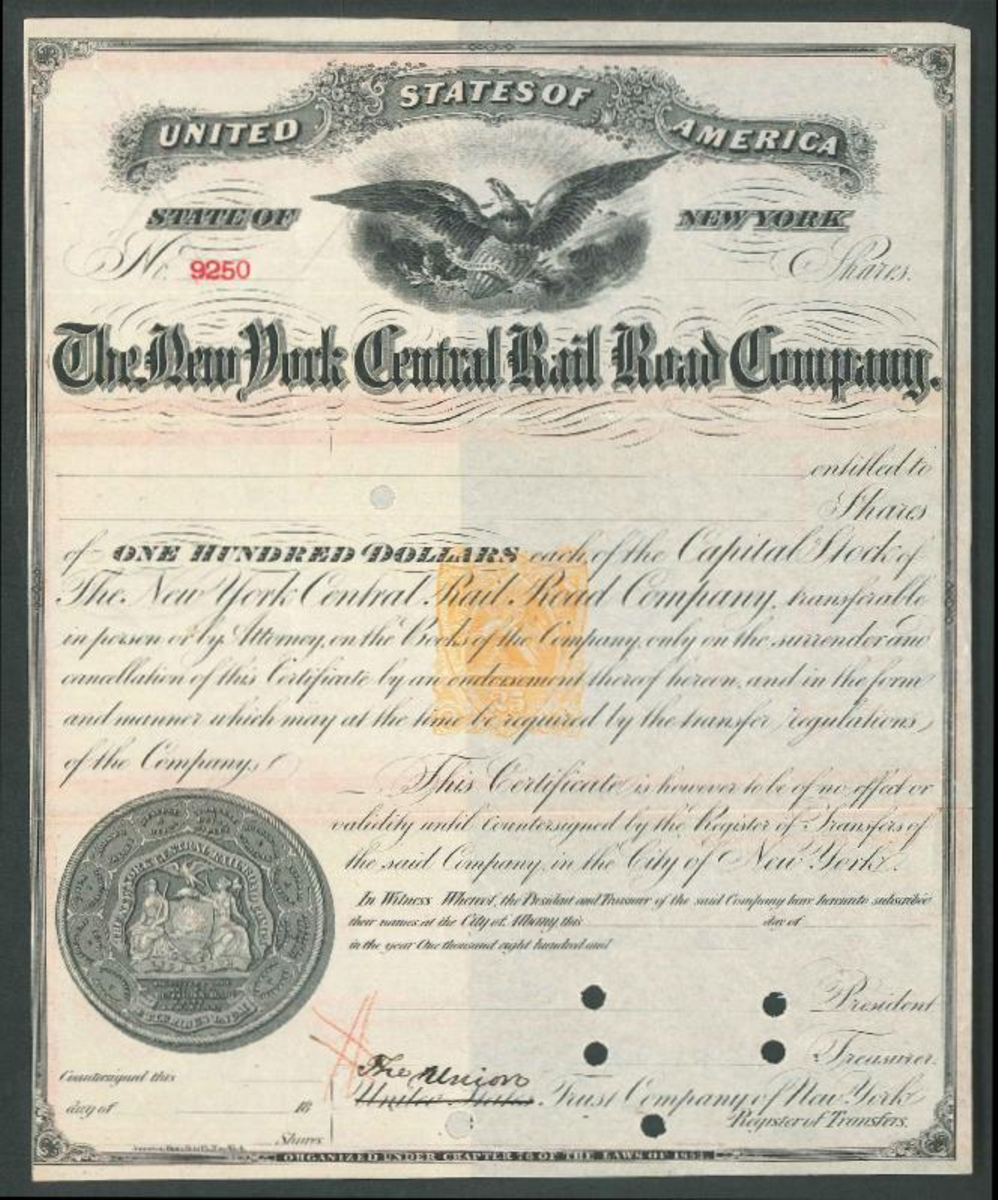 UNITED STATES OF AMERICA
STATE OF NEW YORK
No. 9250 Shares.
The New York Central Rail Road Company.
entitled to
Shares
of ONE HUNDRED DOLLARS each of the Capital Stock of
The New York Central Rail Road Company, transferable
in person or by Attorney, on the Books of the Company only on the surrender and
cancellation of this Certificate by an endorsement thereof hereon, and in the form
and manner which may at the time be required by the transfer regulations
of the Company.
This Certificate is however to be of no effect or
validity until Countersigned by the Register of Transfers of
the said Company, in the City of New York.
In Witness Whereof, the President and Treasurer of the said Company have hereunto subscribed
their names at the City of Albany this day of
in the year One thousand eight hundred and
President
Treasurer.
The Union
Countersigned this
United States Trust Company of New York
day of 18
Register of Transfers.
Shares
ORGANIZED UNDER CHAPTER 76 OF THE LAWS OF 1853.